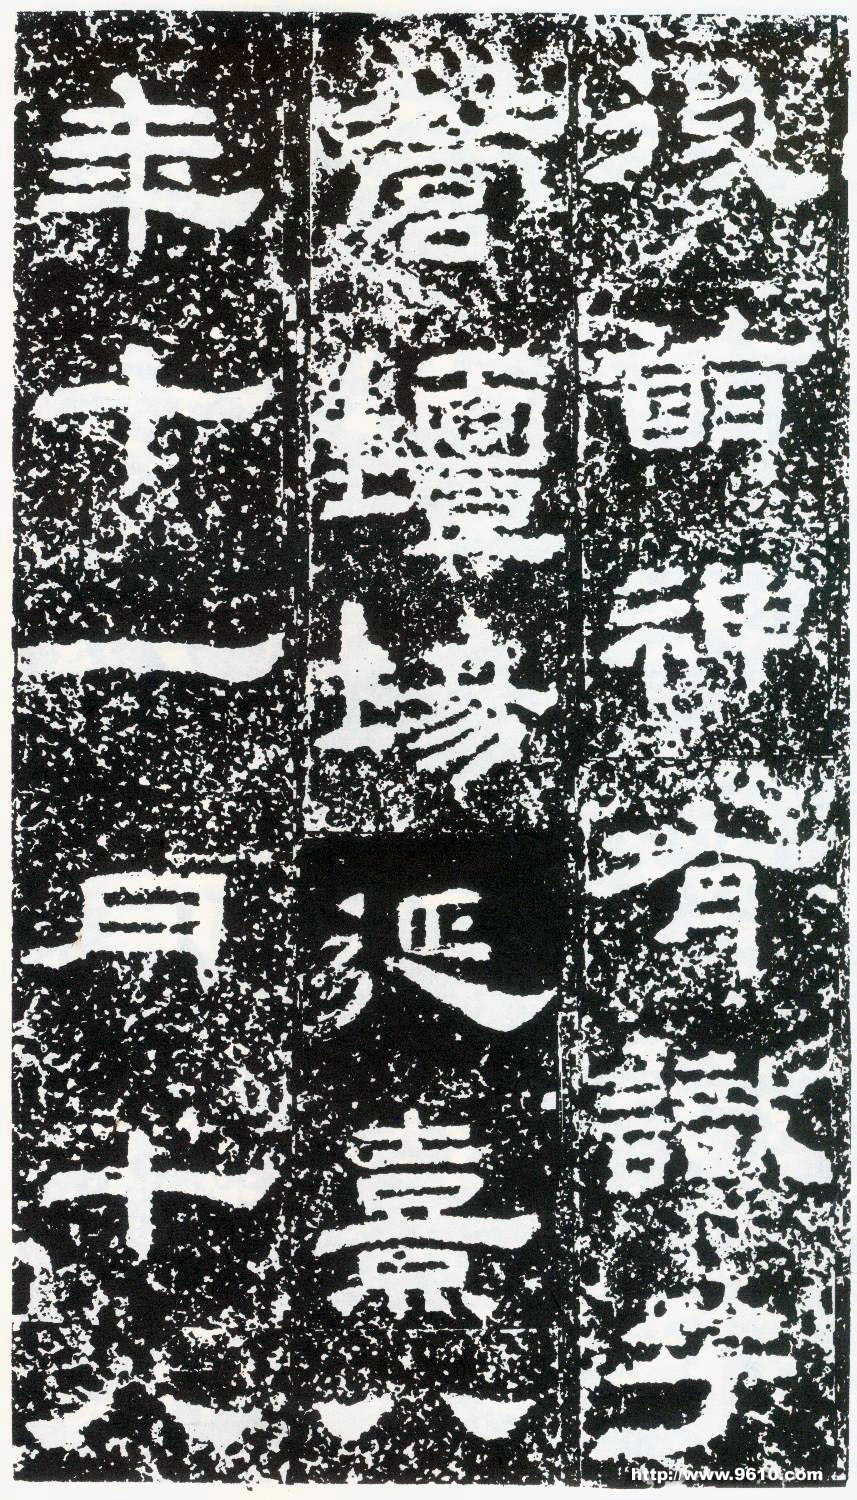 後萌神有識乎
營壇場延熹八
年十一月十八
http://www.9610.com